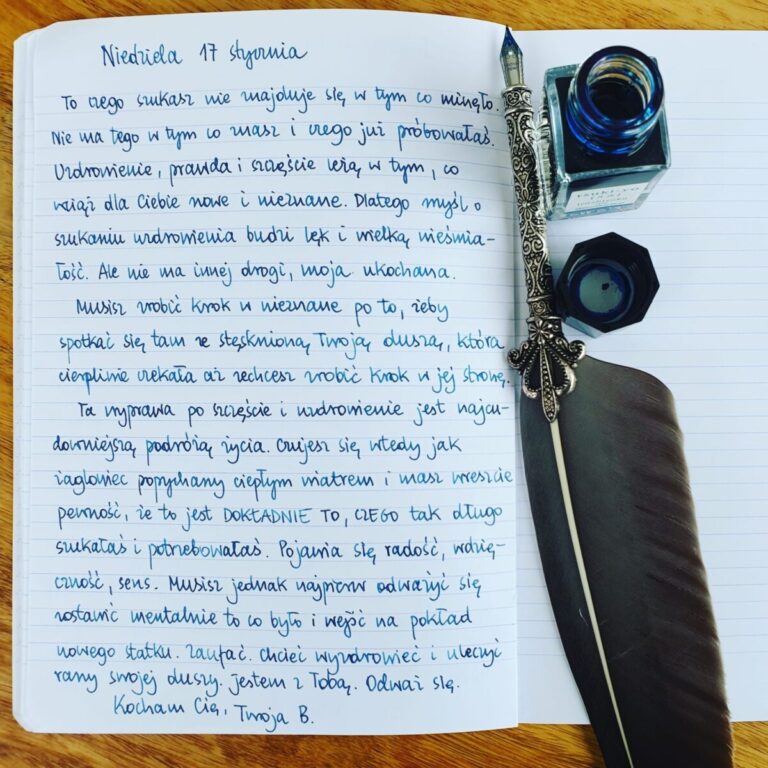 Niedziela 17 stycznia
To czego szukasz nie znajduje się w tym co minęło.
Nie ma tego w tym co znasz i czego już próbowałaś.
Uzdrowienie, prawda i szczęście leżą w tym, co
wciąż dla Ciebie nowe i nieznane. Dlatego myśl o
szukaniu uzdrowienia budzi lęk i wielką nieśmia-
łość. Ale nie ma innej drogi, moja ukochana.
Musisz zrobić krok w nieznane po to, żeby
spotkać się tam ze stęsknioną Twoją duszą, która
cierpliwie czekała aż zechcesz zrobić krok w jej stronę.
Ta wyprawa po szczęście i uzdrowienie jest najcu-
downiejszą podróżą życia. Czujesz się wtedy jak
żaglowiec popychany ciepłym wiatrem i masz wreszcie
pewność, że to jest DOKŁADNIE TO, CZEGO tak długo
szukałaś i potrzebowałaś. Pojawia się radość, wdzię-
czność, sens. Musisz jednak najpierw odważyć się
zostawić mentalnie to co było i wejść na pokład
nowego statku. Zaufać. Chcieć wyzdrowieć i uleczyć
rany swojej duszy. Jestem z Tobą. Odważ się.
Kocham Cię, Twoja B.